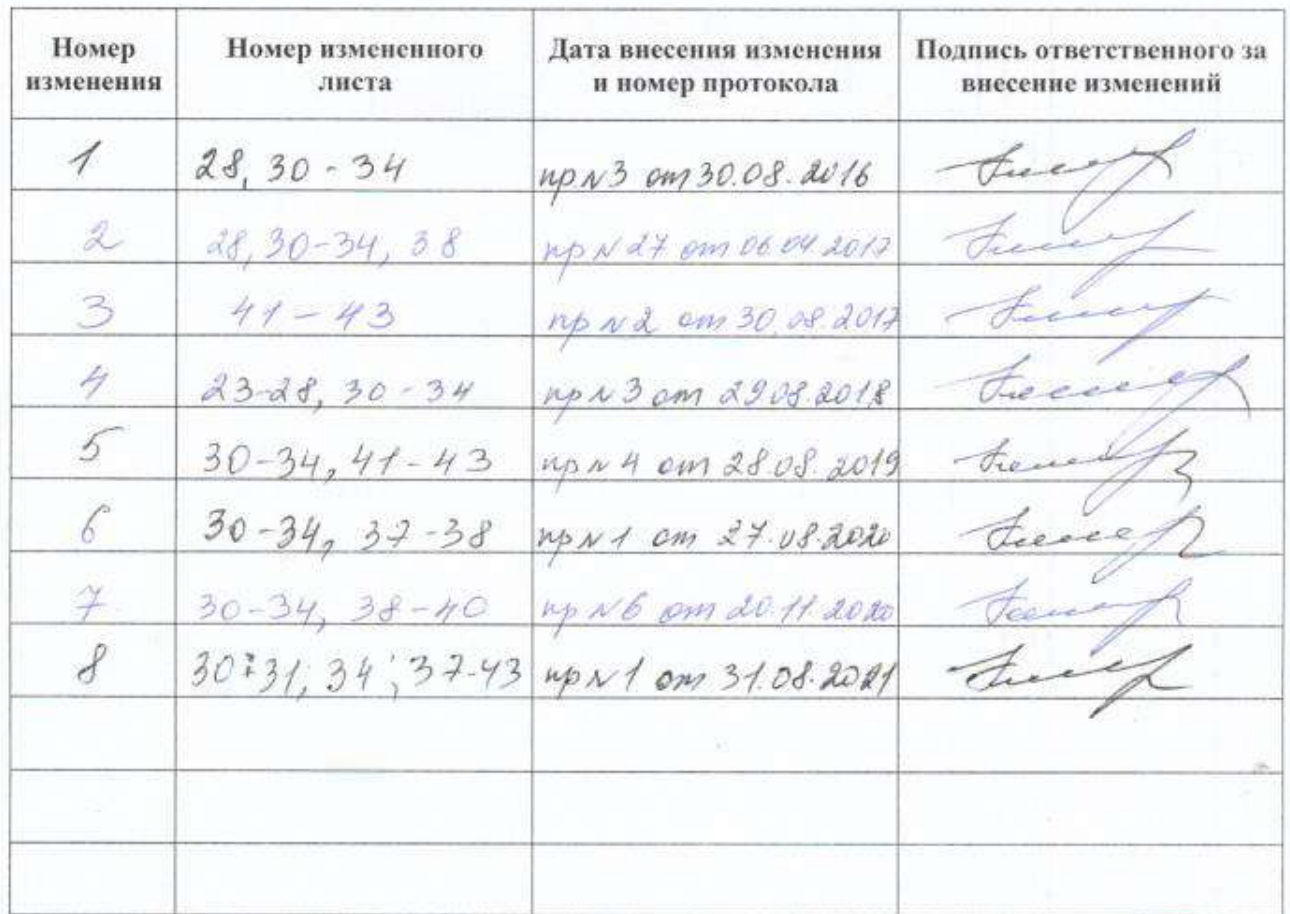 Номер изменения Номер измененного листа Дата внесения изменения и номер протокола Подпись ответственного за внесение изменений
1 28, 30 - 34 пр N3 от 30.08.2016
2 28, 30-34, 38 пр N 27 от 06.04.2017
3 41 - 43 пр N 2 от 30.08.2017
4 23-28, 30 - 34 пр N 3 от 29.08.2018
5 30-34, 41 - 43 пр N 4 от 28.08.2019
6 30-34, 37-38 пр N 1 от 27.08.2020
7 30-34, 38-40 пр N6 от 20.11.2020
8 30-31; 34; 37-43 пр N 1 от 31.08.2021